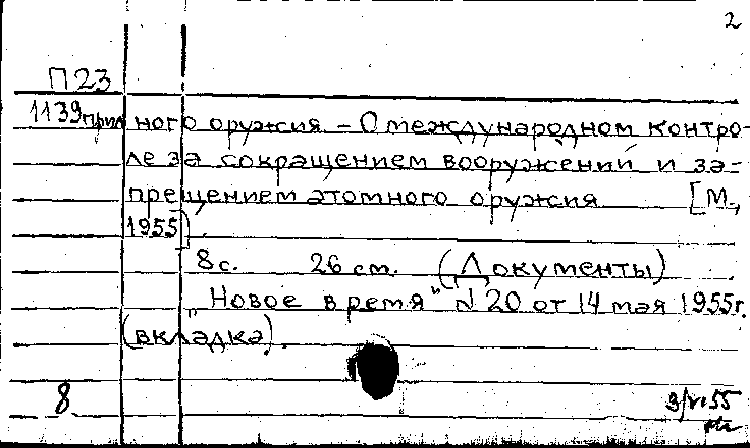 2
П23
1139прил
ного оружия – О международном контро-
ле за сокращением вооружений и за-
прещением атомного оружия [М.,
1955]
8 с. 26 см. (Документы)
"Новое время" № 20 от 14 мая 1955г.
(вкладка).
8
3/VI 55